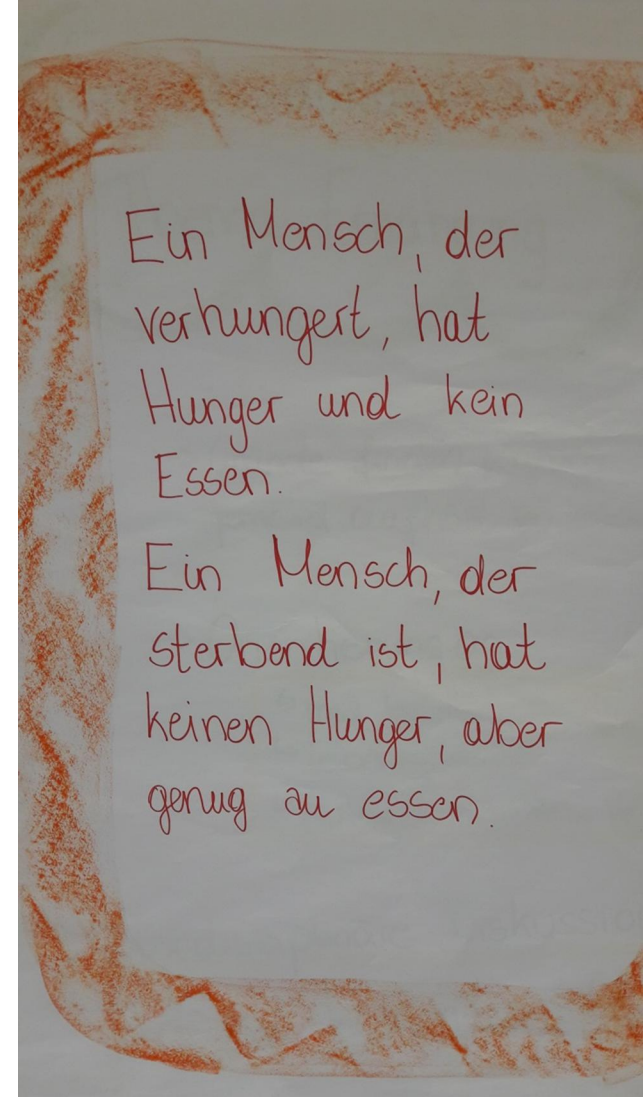 Ein Mensch, der
verhungert, hat
Hunger und kein
Essen.
Ein Mensch, der
sterbend ist, hat
keinen Hunger, aber
genug zu essen.